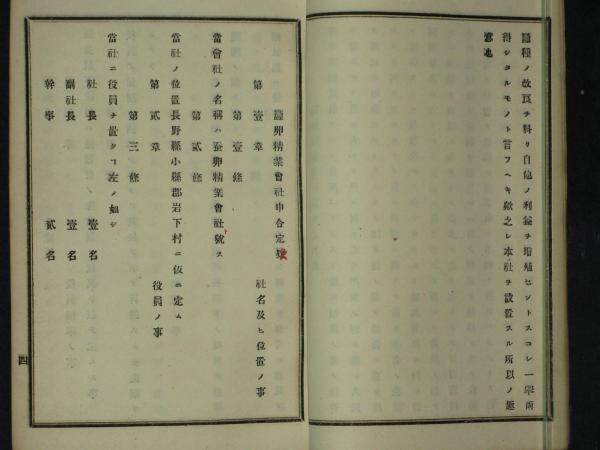 蠶種ノ改良ヲ料リ自他ノ利益ヲ増殖セントスコレ一擧兩
得シタルモノト言フヘキ歟之レ本社ヲ設置スル所以ノ
意也
蠶卵精業會社申合定
第壹章 社名及ヒ位置ノ事
第壹條
當會社ノ名稱ハ蚕卵精業會社號ス
第貳條
當社ノ位置長野縣小縣郡岩下村ニ仮ニ定ム
第貳章 役員ノ事
第三條
當社ニ役員ヲ置クヿ左ノ如シ
社長 壹名
副社長 壹名
幹事 貳名
四